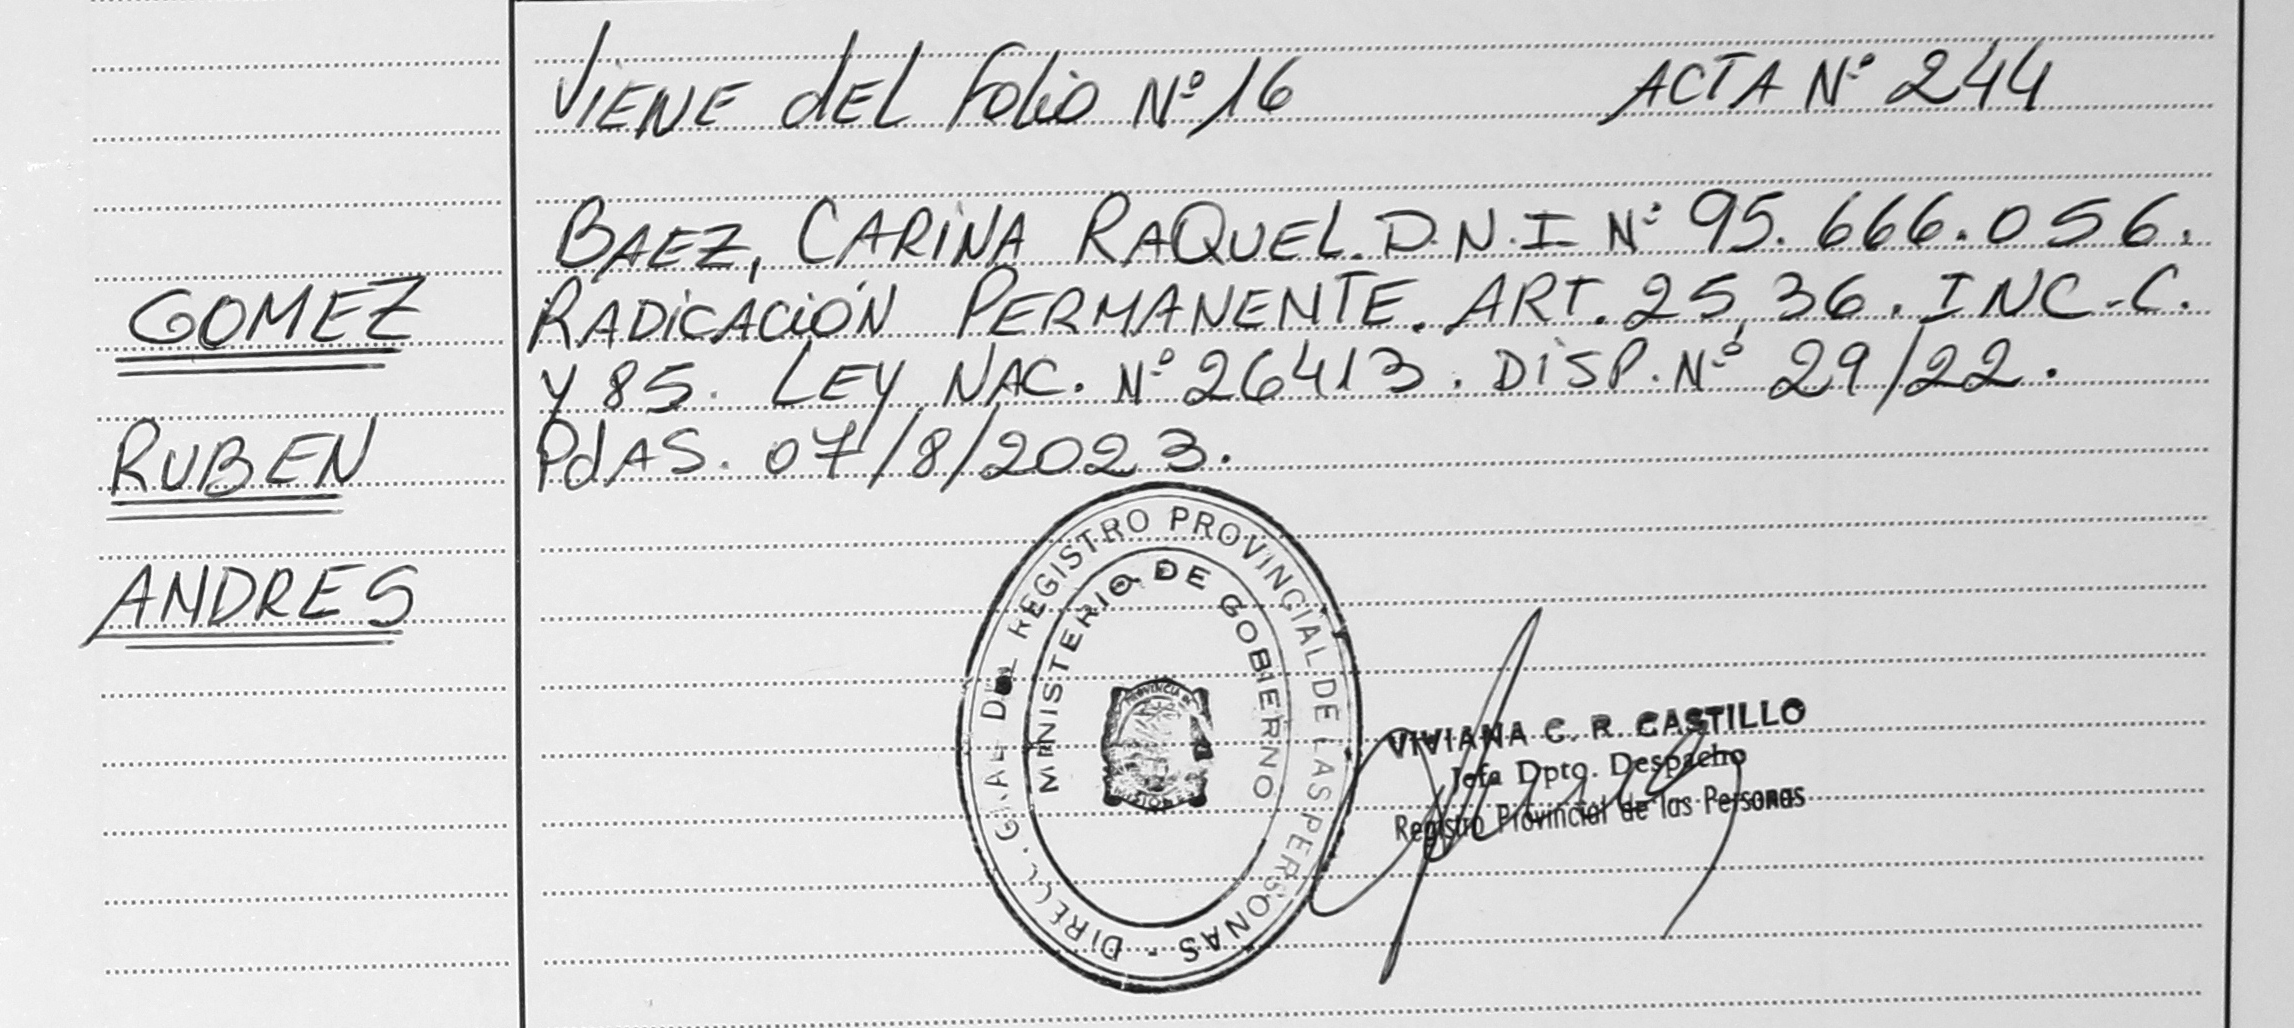 VIENE dEL Folio Nº 16 ACTA Nº 244
BAEZ, CARINA RAQUEL. D.N.I Nº 95.666.056.
RADICACIÓN PERMANENTE. ART. 25, 36. INC-C.
Y 85. LEY NAC. Nº 26413. DISP. Nº 29/22.
PdAS. 07/8/2023.
GOMEZ
RUBEN
ANDRES
DIRECC. GRAL DEL REGISTRO PROVINCIAL DE LAS PERSONAS -
MINISTERIO DE GOBIERNO
PROVINCIA DE
MISIONES
VIVIANA C. R. CASTILLO
Jefa Dpto. Despacho
Registro Provincial de las Personas